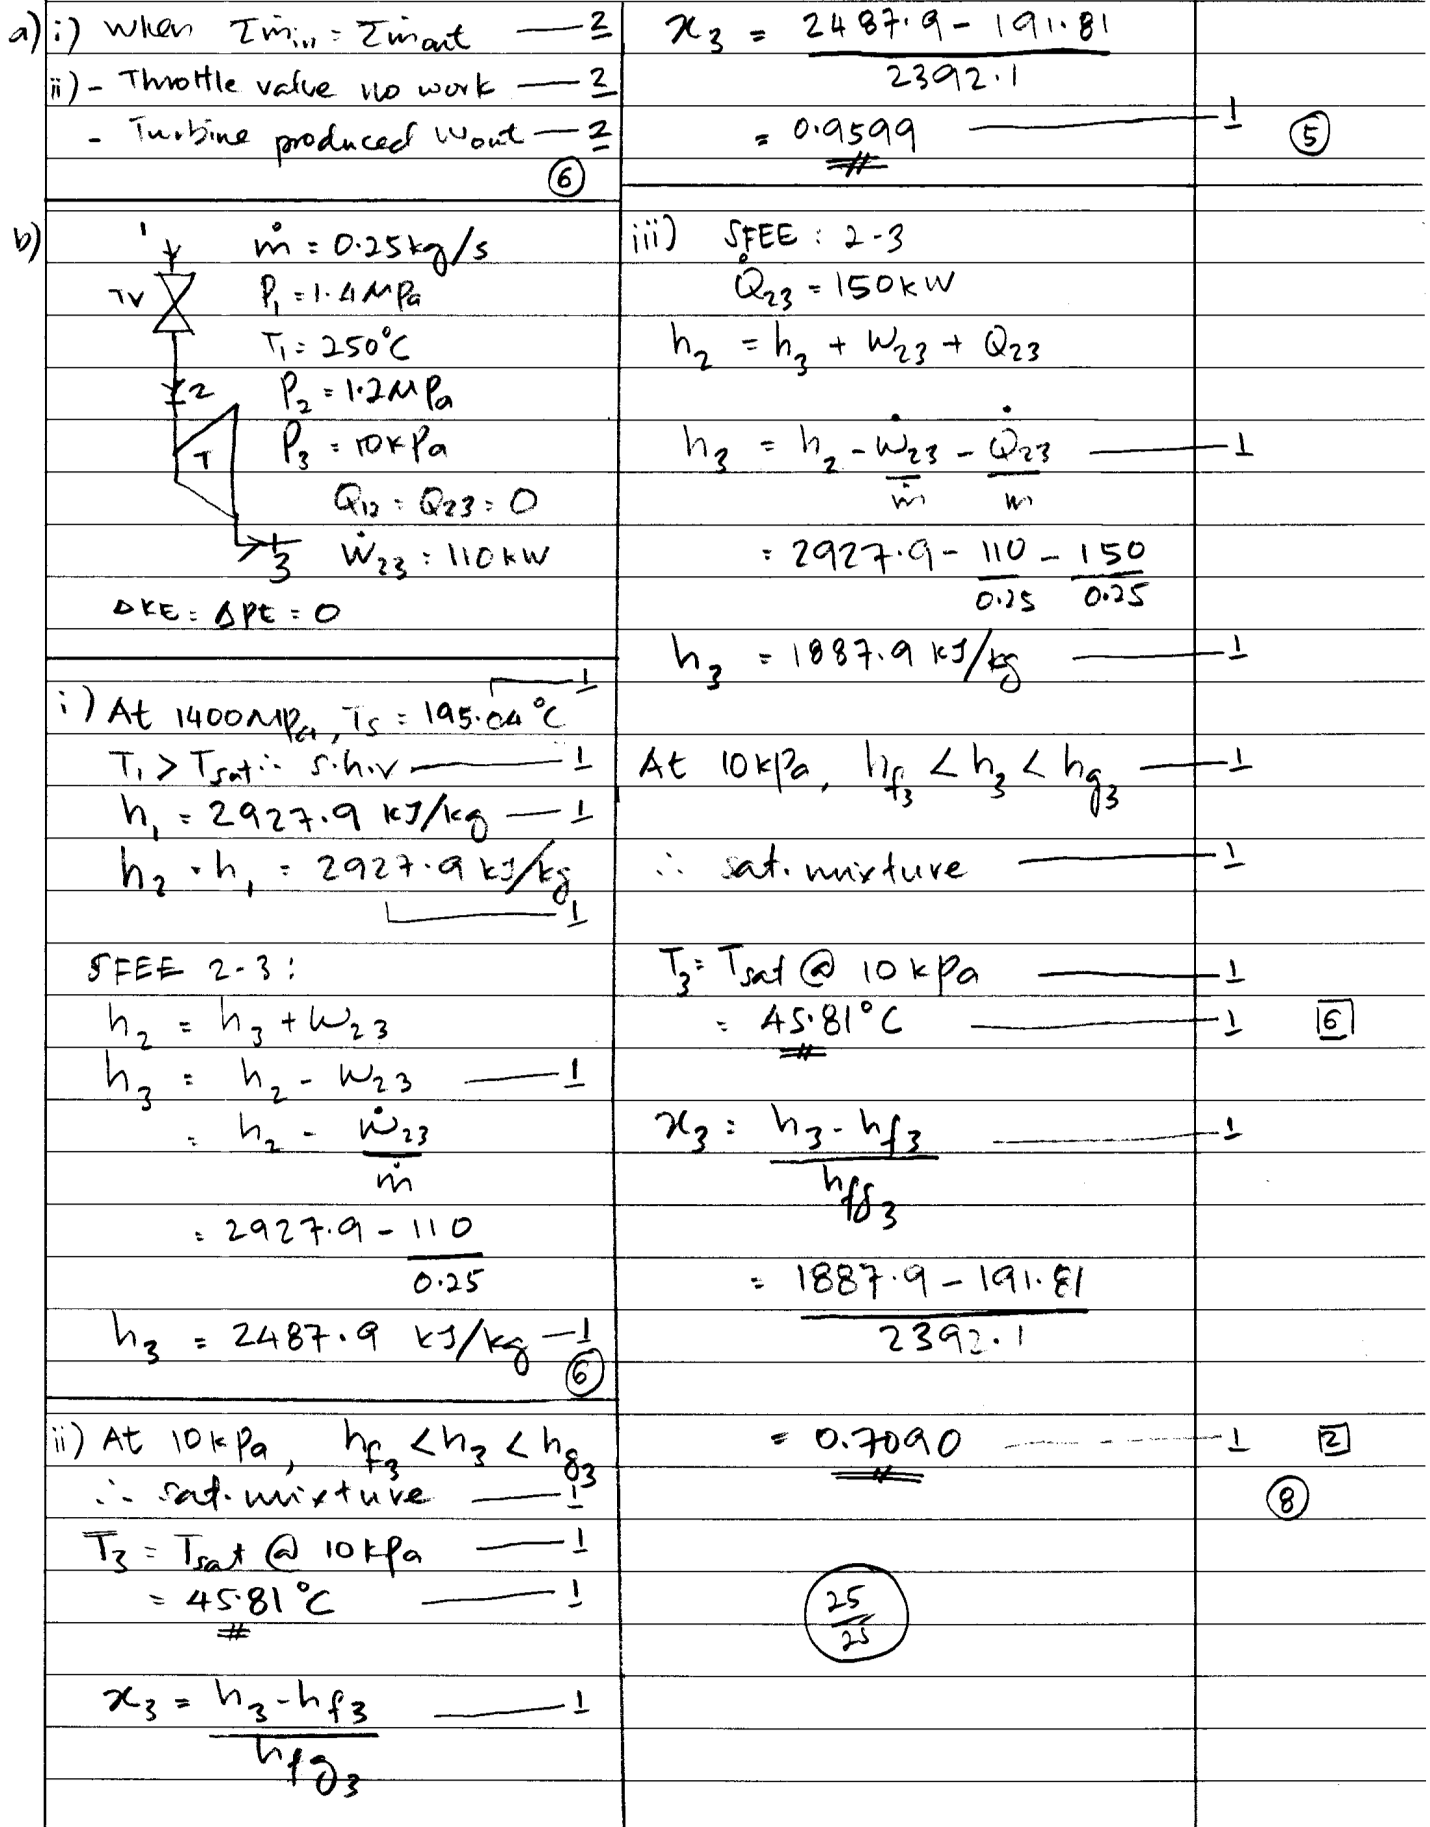 a) i) when Σṁin = Σṁout — 2
ii) - Throttle valve no work — 2
- Turbine produced Wout — 2
⑥
b)
1
TV
2
T
3
ṁ = 0.25 kg/s
P₁ = 1.4 MPa
T₁ = 250°C
P₂ = 1.2 MPa
P₃ = 10 kPa
Q₁₂ = Q₂₃ = 0
Ẇ₂₃ = 110 kW
ΔKE = ΔPE = 0
i) At 1400 MPa, Ts = 195.04°C — 1
T₁ > Tsat ∴ s.h.v — 1
h₁ = 2927.9 kJ/kg — 1
h₂ = h₁ = 2927.9 kJ/kg — 1
SFEE 2-3 :
h₂ = h₃ + W₂₃
h₃ = h₂ - W₂₃ — 1
= h₂ - Ẇ₂₃/ṁ
= 2927.9 - 110/0.25
h₃ = 2487.9 kJ/kg — 1
⑥
ii) At 10 kPa, hf₃ < h₃ < hg₃
∴ sat. mixture — 1
T₃ = Tsat @ 10 kPa — 1
= 45.81°C — 1
x₃ = (h₃ - hf₃)/hfg₃ — 1
x₃ = (2487.9 - 191.81)/2392.1
= 0.9599 — 1 ⑤
iii) SFEE : 2-3
Q̇₂₃ = 150 kW
h₂ = h₃ + W₂₃ + Q₂₃
h₃ = h₂ - Ẇ₂₃/ṁ - Q̇₂₃/m — 1
= 2927.9 - 110/0.25 - 150/0.25
h₃ = 1887.9 kJ/kg — 1
At 10 kPa, hf₃ < h₃ < hg₃ — 1
∴ sat. mixture — 1
T₃ = Tsat @ 10 kPa — 1
= 45.81°C — 1 [6]
x₃ = (h₃ - hf₃)/hfg₃ — 1
= (1887.9 - 191.81)/2392.1
= 0.7090 — 1 [2]
⑧
25/25